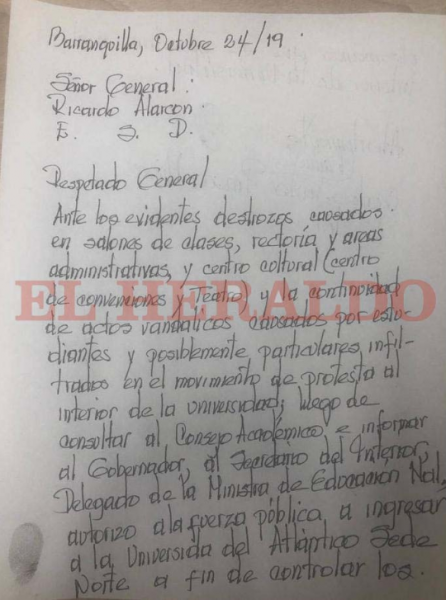 Barranquilla, Octubre 24/19.
Señor General:
Ricardo Alarcon.
E. S. D.
Respetado General
Ante los evidentes destrozos causados.
en salones de clases, rectoría y areas
administrativas, y centro cultural (centro
EL HERALDO
de convenciones y Teatro) y la continuidad
de actos vandálicos causados por estu-
diantes y posiblemente particulares infil-
trados en el movimiento de protesta al
interior de la universidad; luego de
consultar al Consejo Académico e informar
al Gobernador, al Secretario del Interior,
Delegado de la Ministra de Educación Nal,
autorizo a la fuerza pública a ingresar
a la Universida del Atlántico Sede
Norte a fin de controlar los.